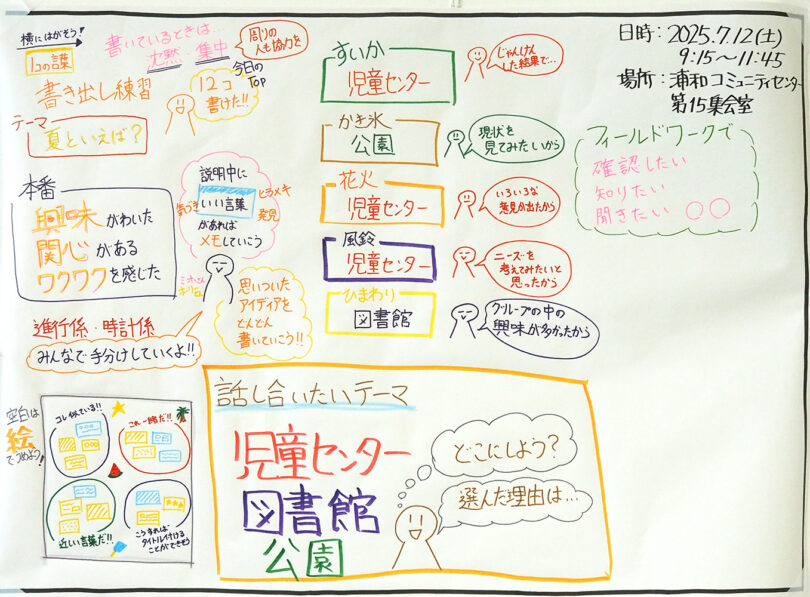 横にはがそう!
1コの言葉
書いているときは…
沈黙・集中
周りの
人も協力を
書き出し練習
今日の
TOP
12コ
書けた!!
テーマ
夏といえば?
本番
興味がわいた
関心がある
ワクワクを感じた
説明中に
いい言葉
があれば
メモしていこう
気づき
ヒラメキ
発見
思いついた
アイディアを
どんどん
書いていこう!!
進行係・時計係
みんなで手分けしていくよ!!
空白は
絵
でうめよう!
コレ似ている!!
これ一緒だ!!
近しい言葉だ!!
こうすれば
タイトル付ける
ことができそう
すいか
児童センター
じゃんけん
した結果で…
かき氷
公園
現状を
見てみたいから
花火
児童センター
いろいろな
意見が出たから
風鈴
児童センター
ニーズを
考えてみたいと
思ったから
ひまわり
図書館
グループの中の
興味が多かったから
話し合いたいテーマ
児童センター
図書館
公園
どこにしよう?
選んだ理由は…
日時:2025.7.12(土)
9:15〜11:45
場所:浦和コミュニティセンター
第15集会室
フィールドワークで
確認したい
知りたい
聞きたい ○○